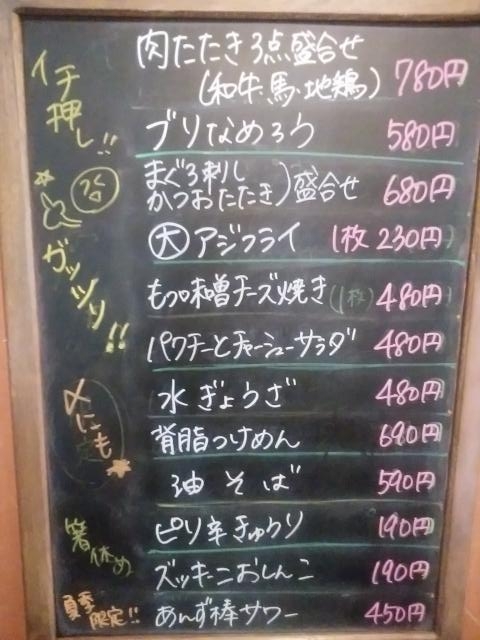 イチ押し!!
肉たたき3点盛合せ
(和牛・馬・地鶏) 780円
ブリなめろう 580円
まぐろ刺し
かつおたたき)盛合せ 680円
大アジフライ 1枚 230円
ガッツリ!!
もつ味噌チーズ焼き(1枚) 480円
パクチーとチャーシューサラダ 480円
水ぎょうざ 480円
〆にも
背脂つけめん 690円
油そば 590円
箸休め
ピリ辛きゅうり 190円
ズッキーニおしんこ 190円
夏季限定!!
あんず棒サワー 450円